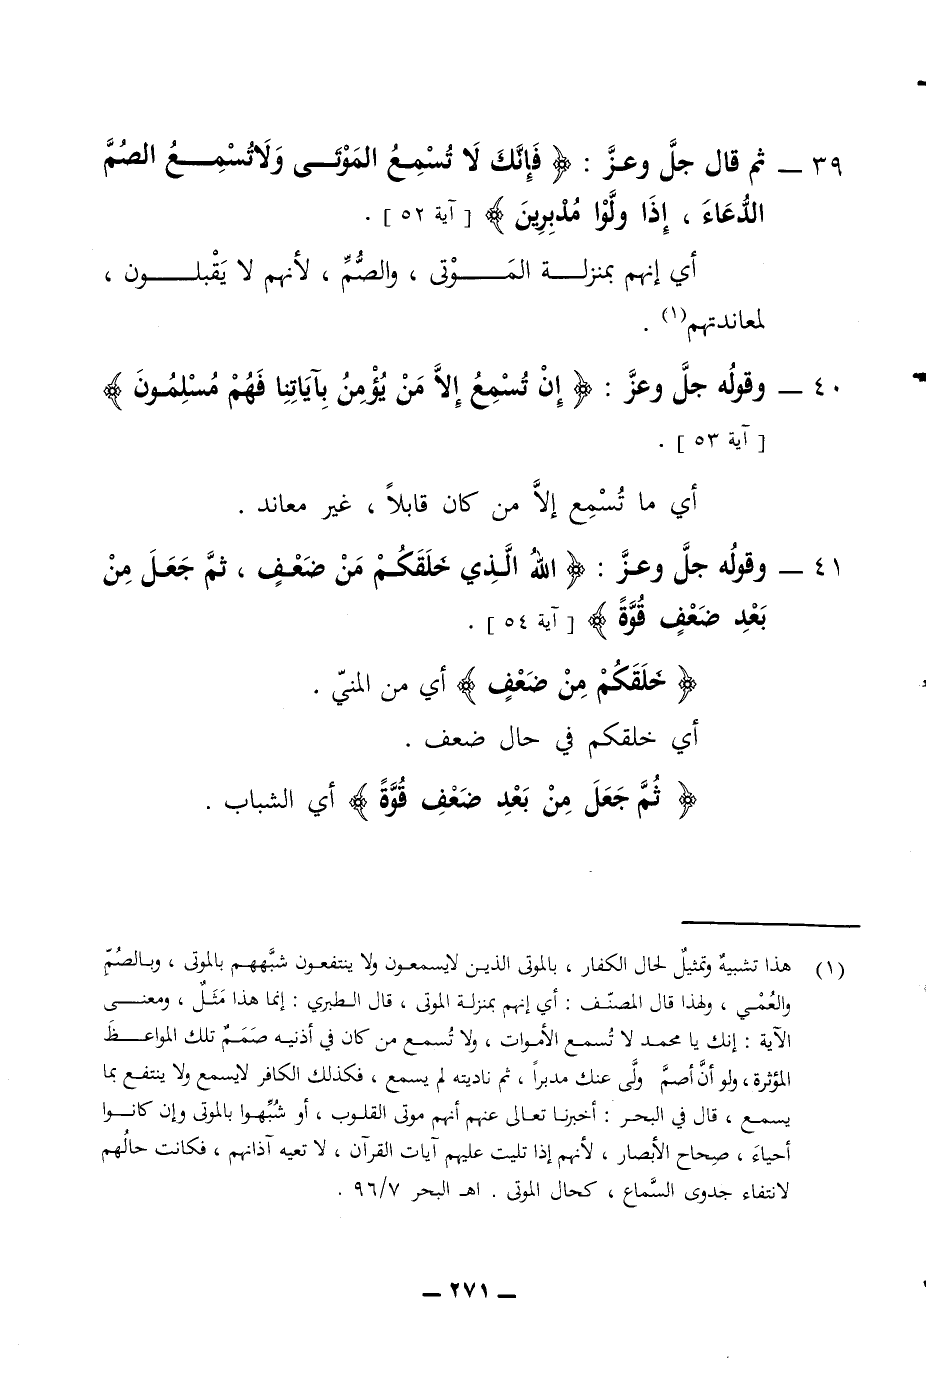 ٣٩ ــ ثم قال جلَّ وعزَّ : ﴿ فَإِنَّكَ لَا تُسْمِعُ المَوْتَى وَلَاتُسْمِعُ الصُمَّ
الدُّعَاءَ ، إِذَا ولَّوْا مُدْبِرِينَ ﴾ [ آية ٥٢ ] .
أي إنهم بمنزلة المَوْتى ، والصُّمِّ ، لأنهم لا يَقْبلون ،
لمعاندتهم(١) .
٤٠ ــ وقولُه جلَّ وعزَّ : ﴿ إِنْ تُسْمِعُ إِلاَّ مَنْ يُؤْمِنُ بِآيَاتِنا فَهُمْ مُسْلِمُونَ ﴾
[ آية ٥٣ ] .
أي ما تُسْمِع إلاَّ من كان قابلاً ، غير معاند .
٤١ ــ وقولُه جلَّ وعزَّ : ﴿ اللهُ الَّذِي خَلَقَكُمْ مَنْ ضَعْفٍ ، ثمَّ جَعَلَ مِنْ
بَعْدِ ضَعْفٍ قُوَّةً ﴾ [ آية ٥٤ ] .
﴿ خَلَقَكُمْ مِنْ ضَعْفٍ ﴾ أي من المنيّ .
أي خلقكم في حال ضعف .
﴿ ثُمَّ جَعَلَ مِنْ بَعْدِ ضَعْفٍ قُوَّةً ﴾ أي الشباب .
(١) هذا تشبيهٌ وتمثيلٌ لحال الكفار ، بالموتى الذين لايسمعون ولا ينتفعون شبَّههم بالموتى ، وبالصُمّ
والعُمْي ، ولهذا قال المصنّف : أي إنهم بمنزلة الموتى ، قال الطبري : إنما هذا مَثَلٌ ، ومعنى
الآية : إنك يا محمد لا تُسمع الأموات ، ولا تُسمع من كان في أذنيه صَمَمٌ تلك المواعظَ
المؤثرة ، ولو أنَّ أصمَّ ولَّى عنك مدبراً ، ثم ناديته لم يسمع ، فكذلك الكافر لايسمع ولا ينتفع بما
يسمع ، قال في البحر : أخبرنا تعالى عنهم أنهم موتى القلوب ، أو شُبِّهوا بالموتى وإن كانوا
أحياءَ ، صِحاح الأبصار ، لأنهم إذا تليت عليهم آيات القرآن ، لا تعيه آذانهم ، فكانت حالُهم
لانتفاء جدوى السَّماع ، كحال الموتى . اهـ البحر ٩٦/٧ .
ــ ٢٧١ ــ